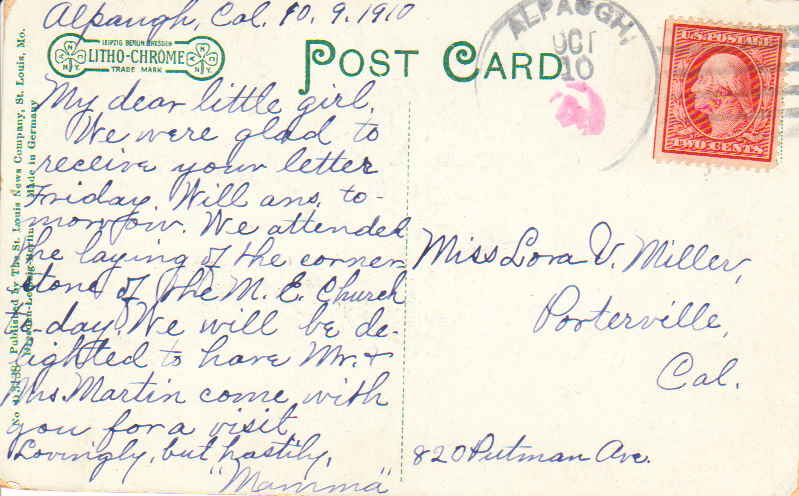 Alpaugh, Cal. 10. 9. 1910
LEIPZIG BERLIN DRESDEN
LITHO-CHROME
TRADE MARK
N Y
N Y
POST CARD
ALPAUGH,
OCT
10
U.S. POSTAGE
TWO CENTS
My dear little girl,
We were glad to
receive your letter
Friday. Will ans. to-
morrow. We attended
the laying of the corner
stone of the M. E. Church
to-day. We will be de-
lighted to have Mr. &
Mrs. Martin come with
you for a visit.
Lovingly, but hastily,
"Mamma"
Miss Lora V. Miller,
Porterville,
Cal.
820 Putman Ave.
Published by The St. Louis News Company, St. Louis, Mo.
Dresden-Leipzig-Berlin Made in Germany